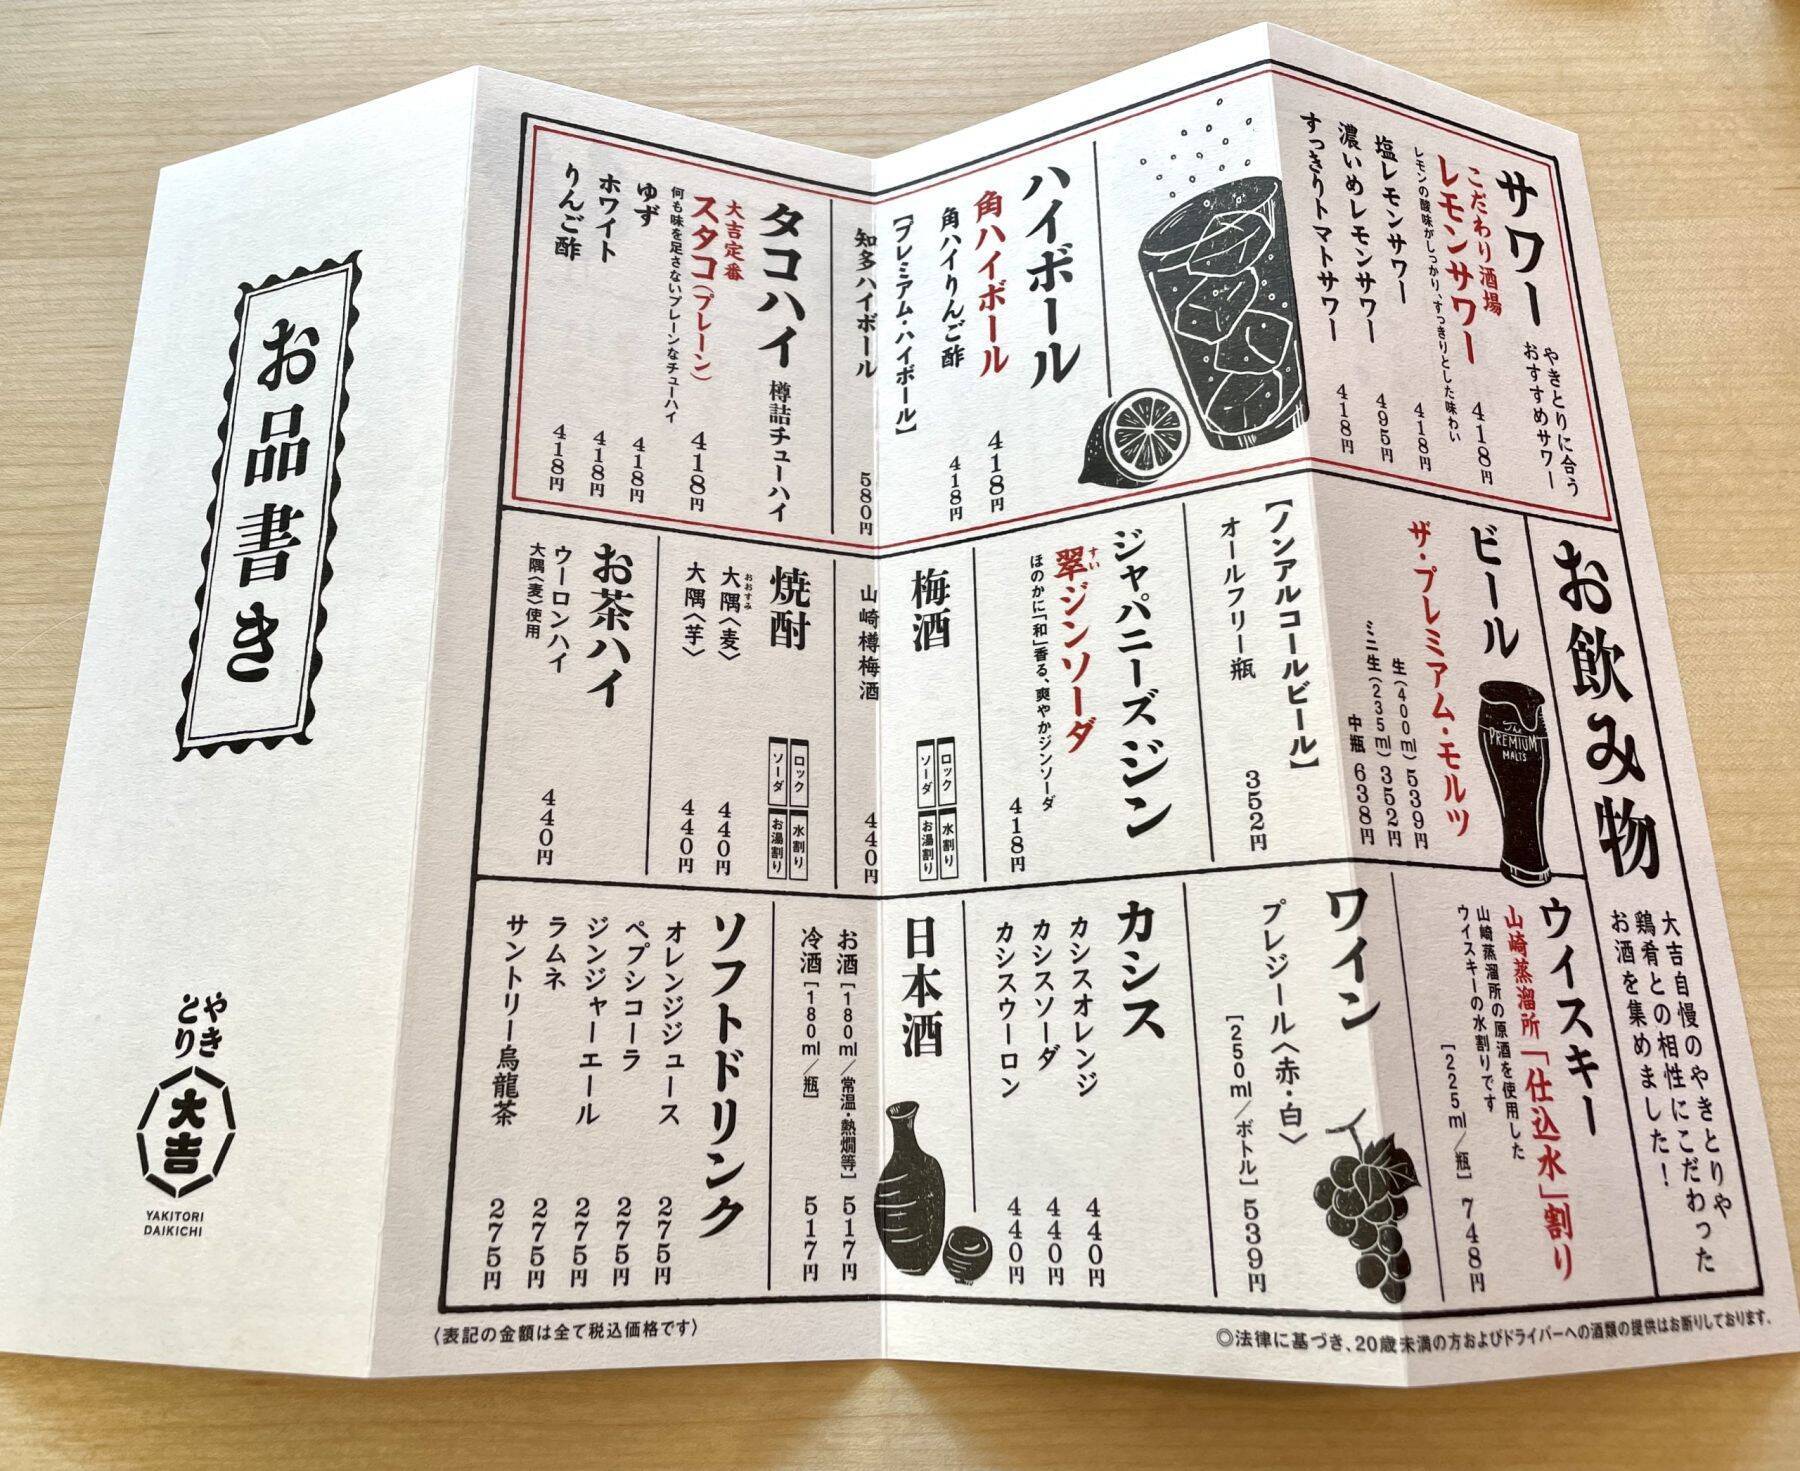 お飲み物
大吉自慢のやきとりや
鶏肴との相性にこだわった
お酒を集めました！
サワー
やきとりに合う
おすすめサワー
こだわり酒場
レモンサワー 418円
レモンの酸味がしっかり、すっきりとした味わい
塩レモンサワー 418円
濃いめレモンサワー 495円
すっきりトマトサワー 418円
ハイボール
角ハイボール 418円
角ハイりんご酢 418円
【プレミアム・ハイボール】
知多ハイボール 580円
タコハイ 樽詰チューハイ
大吉定番
スタコ(プレーン) 418円
何も味を足さないプレーンなチューハイ
ゆず 418円
ホワイト 418円
りんご酢 418円
ビール
ザ・プレミアム・モルツ
生(400ml) 539円
ミニ生(235ml) 352円
中瓶 638円
The
PREMIUM
MALT'S
【ノンアルコールビール】
オールフリー瓶 352円
ジャパニーズジン
すい
翠ジンソーダ 418円
ほのかに「和」香る、爽やかジンソーダ
梅酒
ロック
水割り
ソーダ
お湯割り
山崎樽梅酒 440円
焼酎
ロック
水割り
ソーダ
お湯割り
おおすみ
大隅〈麦〉 440円
大隅〈芋〉 440円
お茶ハイ
ウーロンハイ 440円
大隅〈麦〉使用
ウィスキー
山崎蒸溜所「仕込水」割り
山崎蒸溜所の原酒を使用した
ウイスキーの水割りです
[225ml／瓶] 748円
ワイン
プレジール〈赤・白〉
[250ml／ボトル] 539円
カシス
カシスオレンジ 440円
カシスソーダ 440円
カシスウーロン 440円
日本酒
お酒[180ml／常温・熱燗等] 517円
冷酒[180ml／瓶] 517円
ソフトドリンク
オレンジジュース 275円
ペプシコーラ 275円
ジンジャーエール 275円
ラムネ 275円
サントリー烏龍茶 275円
◎法律に基づき、20歳未満の方およびドライバーへの酒類の提供はお断りしております。
〈表記の金額は全て税込価格です〉
お品書き
やき
とり
大吉
YAKITORI
DAIKICHI